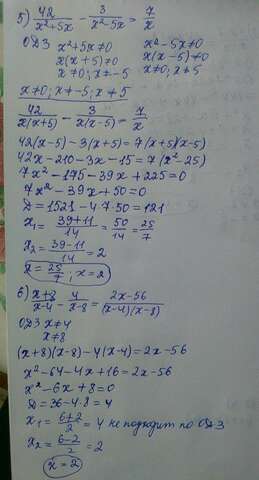 5) 42/(x²+5x) - 3/(x²-5x) = 7/x
ОДЗ x²+5x≠0 x²-5x≠0
x(x+5)≠0 x(x-5)≠0
x≠0; x≠-5 x≠0; x≠5
x≠0; x≠-5; x≠5
42/x(x+5) - 3/x(x-5) = 7/x
42(x-5)-3(x+5)=7(x+5)(x-5)
42x-210-3x-15=7(x²-25)
7x²-175-39x+225=0
7x²-39x+50=0
D=1521-4·7·50=121
x₁=(39+11)/14=50/14=25/7
x₂=(39-11)/14=2
x=25/7; x=2
6) (x+8)/(x-4) - 4/(x-8) = (2x-56)/(x-4)(x-8)
ОДЗ x≠4
x≠8
(x+8)(x-8)-4(x-4)=2x-56
x²-64-4x+16=2x-56
x²-6x+8=0
D=36-4·8=4
x₁=(6+2)/2=4 не подходит по ОДЗ
x₂=(6-2)/2=2
x=2